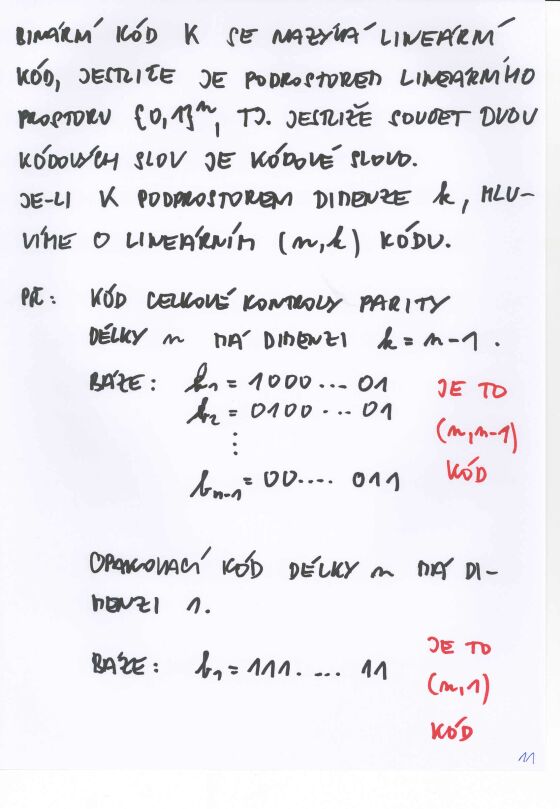 BINÁRNÍ KÓD K SE NAZÝVÁ LINEÁRNÍ
KÓD, JESTLIŽE JE PODPROSTOREM LINEÁRNÍHO
PROSTORU {0,1}ⁿ, TJ. JESTLIŽE SOUČET DVOU
KÓDOVÝCH SLOV JE KÓDOVÉ SLOVO.
JE-LI K PODPROSTOREM DIMENZE k, MLU-
VÍME O LINEÁRNÍM (n,k) KÓDU.
PŘ: KÓD CELKOVÉ KONTROLY PARITY
DÉLKY n MÁ DIMENZI k = n-1.
BÁZE: b₁ = 1000 ... 01
b₂ = 0100 ... 01
⋮
bₙ₋₁ = 00.... 011
JE TO
(n,n-1)
KÓD
OPAKOVACÍ KÓD DÉLKY n MÁ DI-
MENZI 1.
BÁZE: b₁ = 111. ... 11
JE TO
(n,1)
KÓD
11